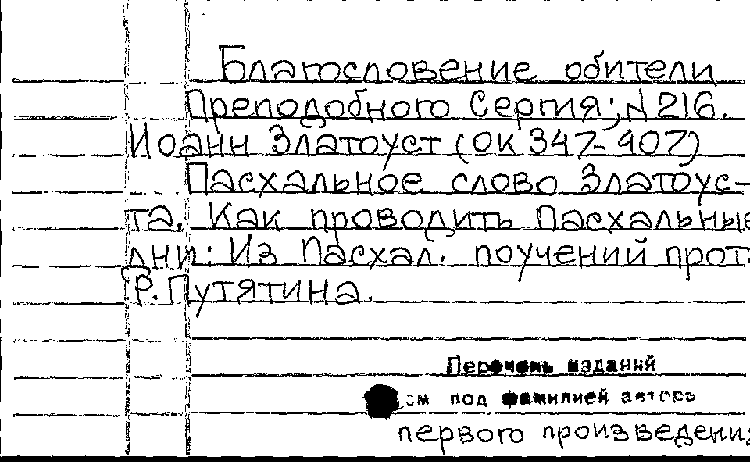 Благословение обители
Преподобного Сергия; N 216.
Иоанн Златоуст (ок 347-407)
Пасхальное слово Златоус-
та. Как проводить Пасхальные
дни: Из Пасхал. поучений прот.
Р. Путятина.
Перечень изданий
см под фамилией автора
первого произведения